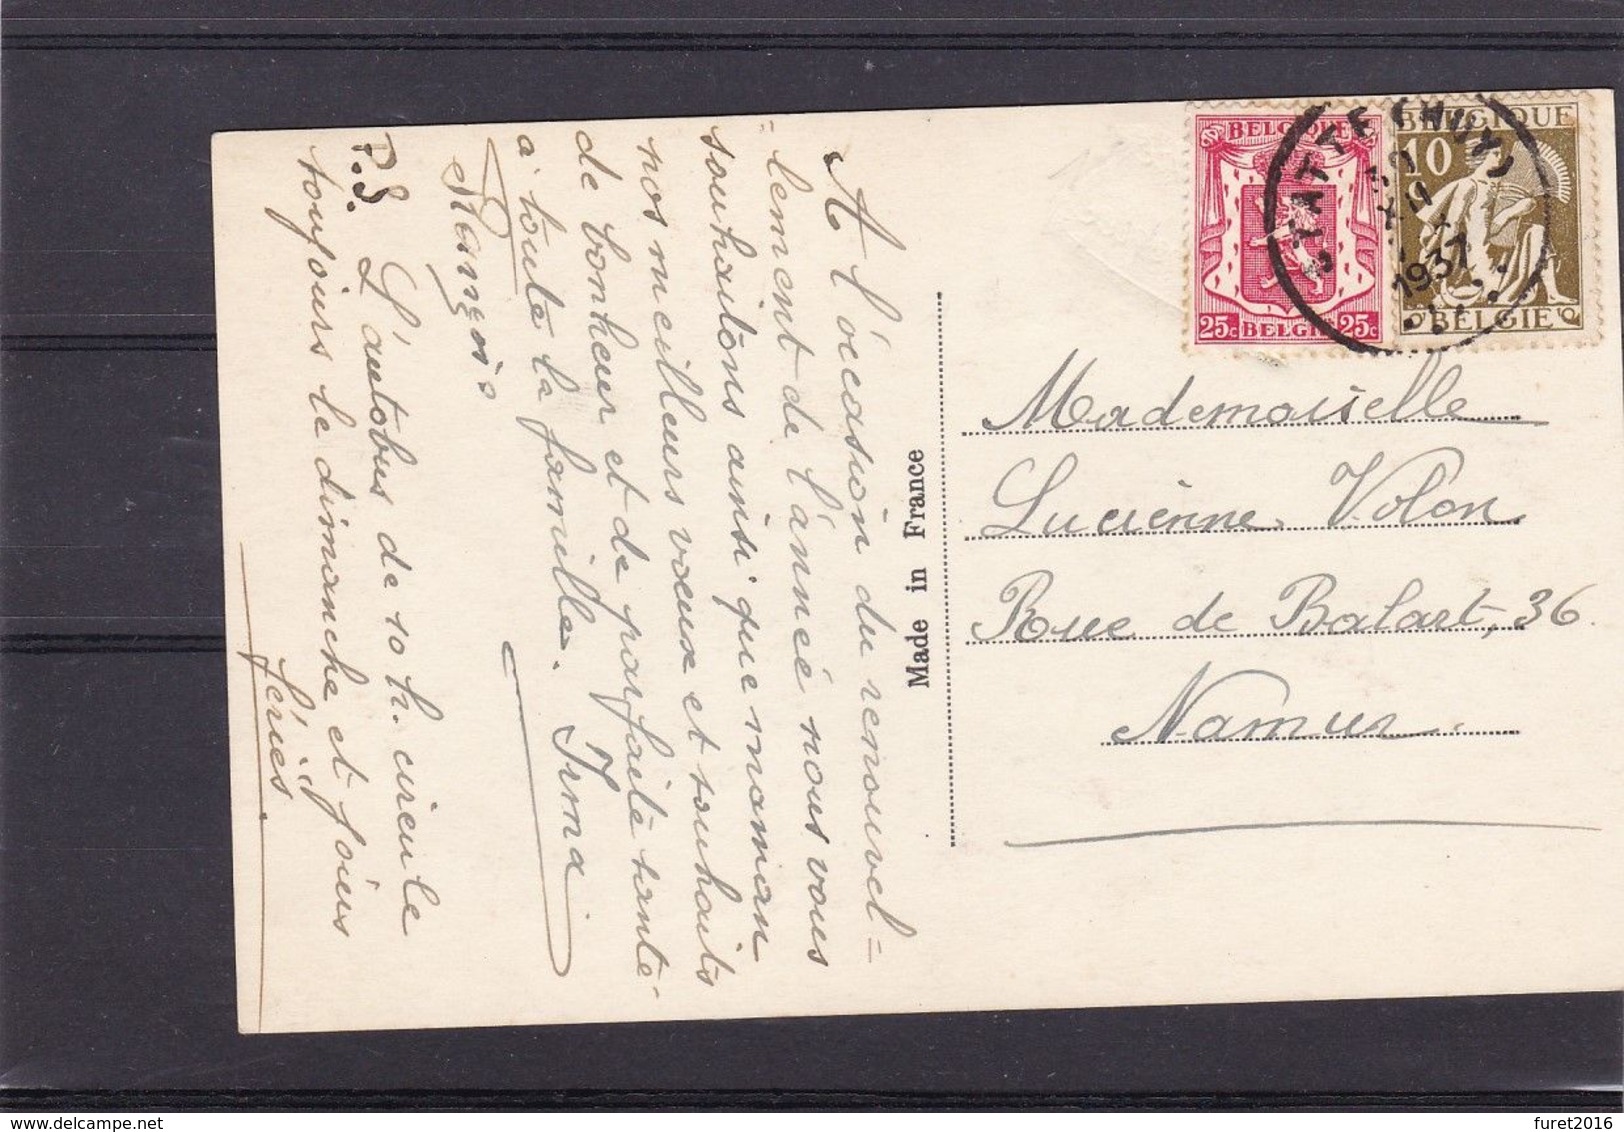 A l'occasion du renouvel=
=lement de l'année nous vous
souhaitons ainsi que maman
nos meilleurs vœux et souhaits
de bonheur et de parfaite santé.
à toute la famille. Irma
François
P.S. L'autobus de 10 h. circule
toujours le dimanche et jours
fériés.
Made in France
BELGIQUE
25c BELGIE 25c
BELGIQUE
10
BELGIË
STATTE (HUY)
30
XII
1937
Mademoiselle
Lucienne Volon
Rue de Balart, 36
Namur
Delcampe.net
furet2016